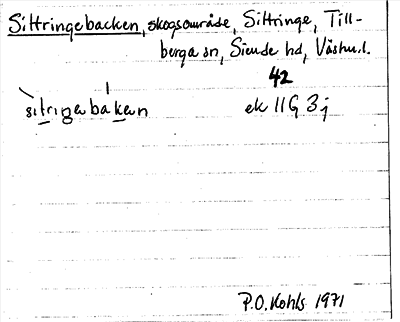 Sittringebacken, skogsområde, Sittringe, Till-
berga sn, Siende hd, Västm. l.
42
sitringabakan ek 11G 3j
P.O. Kohls 1971